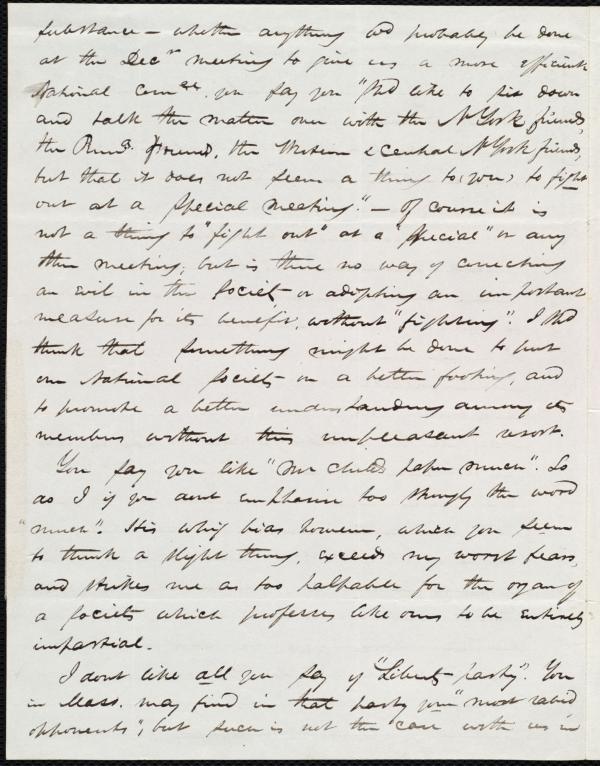 substance — whether anything cd probably be done
at the Decr meeting to give us a more efficient
National Comee. you say you "shd like to sit down
and talk the matter over with the N York friends,
the Penna. friends, the Western & Central N York friends,
but that it does not seem a thing to (you) to fight
out at a special meeting." — Of course it is
not a thing to "fight out" at a "special" or any
other meeting; but is there no way of correcting
an evil in the Society or adopting an important
measure for its benefit, without "fighting". I shd
think that something might be done to put
our National Society on a better footing, and
to promote a better understanding among its
members without this unpleasant resort.
You say you like "Mr Child's paper much". So
do I if you dont emphasise too strongly the word
"much". His whig bias however, which you seem
to think a slight thing, exceeds my worst fears,
and strikes me as too palpable for the organ of
a Society which professes like ours to be entirely
impartial.
I dont like all you say of "Liberty party". You
in Mass. may find in that party your "most rabid
opponents", but such is not the case with us in